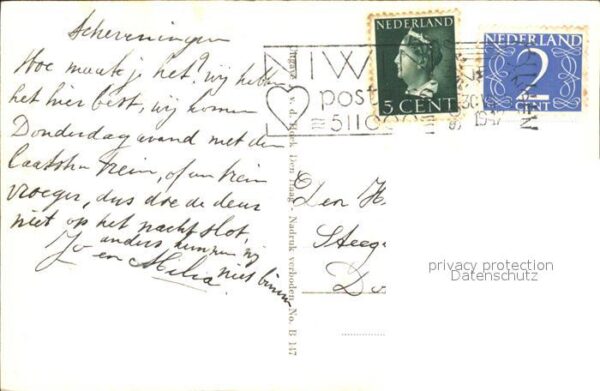 Scheveningen
Hoe maak je het? wij hebben
het hier best, wij komen
Donderdag avond met den
laatsten trein, of een trein
vroeger, dus doe de deur
niet op het nachtslot,
anders kunnen wij
niet binnen
Jo en
Uitgave J. v. d. Hoek Den Haag - Nadruk verboden. No. B 147
NIWI
post
511000
NEDERLAND
5 CENT
NEDERLAND
2
CENT
30.
1947
Den H
Steeg
D
privacy protection
Datenschutz